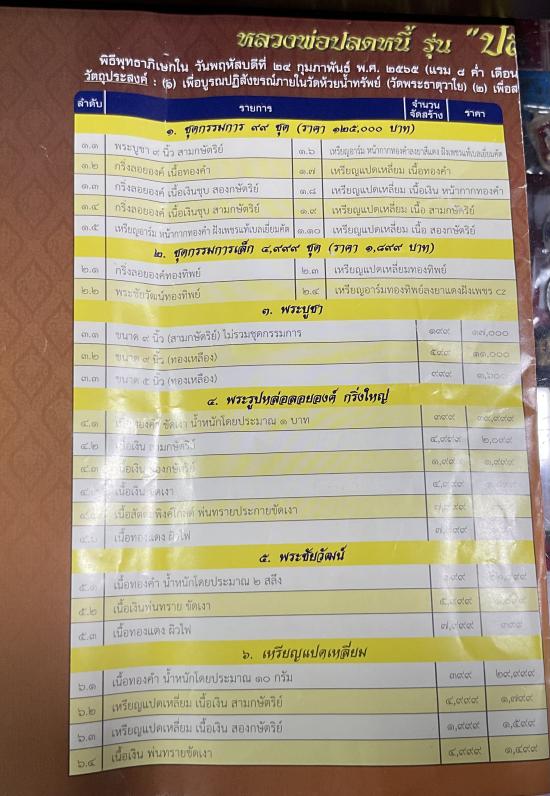 หลวงพ่อปลดหนี้ รุ่น "ปลด
พิธีพุทธาภิเษกใน วันพฤหัสบดีที่ ๒๔ กุมภาพันธ์ พ.ศ. ๒๕๖๕ (แรม ๘ ค่ำ เดือน
วัตถุประสงค์ : (๑) เพื่อบูรณปฏิสังขรณ์ภายในวัดห้วยน้ำทรัพย์ (วัดพระธาตุวาโย) (๒) เพื่อส
ลำดับ รายการ จำนวนจัดสร้าง ราคา
๑. ชุดกรรมการ ๙๙ ชุด (ราคา ๑๒๕,๐๐๐ บาท)
๑.๑ พระบูชา ๙ นิ้ว สามกษัตริย์ ๑.๖ เหรียญอาร์ม หน้ากากทองคำลงยาสีแดง ฝังเพชรแท้เบลเยี่ยมคัด
๑.๒ กริ่งลอยองค์ เนื้อทองคำ ๑.๗ เหรียญแปดเหลี่ยม เนื้อทองคำ
๑.๓ กริ่งลอยองค์ เนื้อเงินชุบ สองกษัตริย์ ๑.๘ เหรียญแปดเหลี่ยม เนื้อเงิน หน้ากากทองคำ
๑.๔ กริ่งลอยองค์ เนื้อเงินชุบ สามกษัตริย์ ๑.๙ เหรียญแปดเหลี่ยม เนื้อ สามกษัตริย์
๑.๕ เหรียญอาร์ม หน้ากากทองคำ ฝังเพชรแท้เบลเยี่ยมคัด ๑.๑๐ เหรียญแปดเหลี่ยม เนื้อ สองกษัตริย์
๒. ชุดกรรมการเล็ก ๔,๙๙๙ ชุด (ราคา ๑,๘๙๙ บาท)
๒.๑ กริ่งลอยองค์ทองทิพย์ ๒.๓ เหรียญแปดเหลี่ยมทองทิพย์
๒.๒ พระชัยวัฒน์ทองทิพย์ ๒.๔ เหรียญอาร์มทองทิพย์ลงยาแดงฝังเพชร CZ
๓. พระบูชา
๓.๑ ขนาด ๙ นิ้ว (สามกษัตริย์) ไม่รวมชุดกรรมการ ๑๙๙ ๑๗,๐๐๐
๓.๒ ขนาด ๙ นิ้ว (ทองเหลือง) ๕๙๙ ๑๑,๐๐๐
๓.๓ ขนาด ๕ นิ้ว (ทองเหลือง) ๙๙๙
๔. พระรูปหล่อลอยองค์ กริ่งใหญ่
๔.๑ ขัดเงา น้ำหนักโดยประมาณ ๑ บาท ๓๙๙
๔.๒ เนื้อเงิน สามกษัตริย์ ๔,๙๙๙ ๒,๐๙๙
๔.๓ เนื้อเงิน สองกษัตริย์ ๑,๙๙๙ ๑,๙๙๙
เนื้อเงิน ขัดเงา ๔,๙๙๙
พ่นทรายประกายขัดเงา
เนื้อทองแดง ผิวไฟ
๕. พระชัยวัฒน์
๕.๑ เนื้อทองคำ น้ำหนักโดยประมาณ ๒ สลึง
๕.๒ เนื้อเงินพ่นทราย ขัดเงา ๕,๙๙๙
๕.๓ เนื้อทองแดง ผิวไฟ ๗,๙๙๙ ๓๙๙
๖. เหรียญแปดเหลี่ยม
๖.๑ เนื้อทองคำ น้ำหนักโดยประมาณ ๑๐ กรัม ๓๙๙ ๒๙,๙๙๙
๖.๒ เหรียญแปดเหลี่ยม เนื้อเงิน สามกษัตริย์ ๔,๙๙๙ ๑,๗๙๙
๖.๓ เหรียญแปดเหลี่ยม เนื้อเงิน สองกษัตริย์ ๑,๙๙๙ ๑,๕๙๙
๖.๔ เนื้อเงิน พ่นทรายขัดเงา ๔,๙๙๙ ๑,๔๙๙